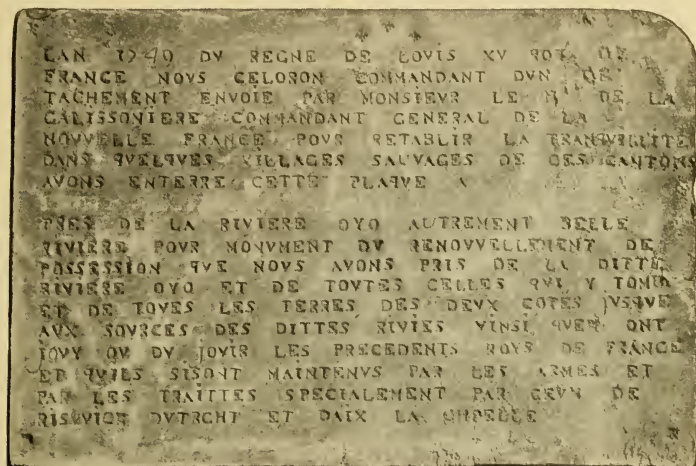 LAN 1749 DV REGNE DE LOVIS XV ROY DE
FRANCE NOVS CELORON COMMANDANT DVN DE
TACHEMENT ENVOIE PAR MONSIEVR LE M DE LA
GALISSONIERE COMMANDANT GENERAL DE LA
NOVVELLE FRANCE POVR RETABLIR LA TRANQVILLITE
DANS QVELQVES VILLAGES SAUVAGES DE CES CANTONS
AVONS ENTERRE CETTE PLAQVE A
PRES DE LA RIVIERE OYO AUTREMENT BELLE
RIVIERE POVR MONVMENT DV RENOVVELLEMENT DE
POSSESSION QVE NOVS AVONS PRIS DE LA DITTE
RIVIERE OYO ET DE TOVTES CELLES QVI Y TOMB
ET DE TOVES LES TERRES DES DEVX COTES JVSQVE
AVX SOVRCES DES DITTES RIVIES VINSI QVEN ONT
JOVY OV DV JOVIR LES PRECEDENTS ROYS DE FRANCE
ET QVILS SISONT MAINTENVS PAR LES ARMES ET
PAR LES TRAITTES SPECIALEMENT PAR CEVX DE
RISVVICK DVTRCHT ET DAIX LA CHPELLE